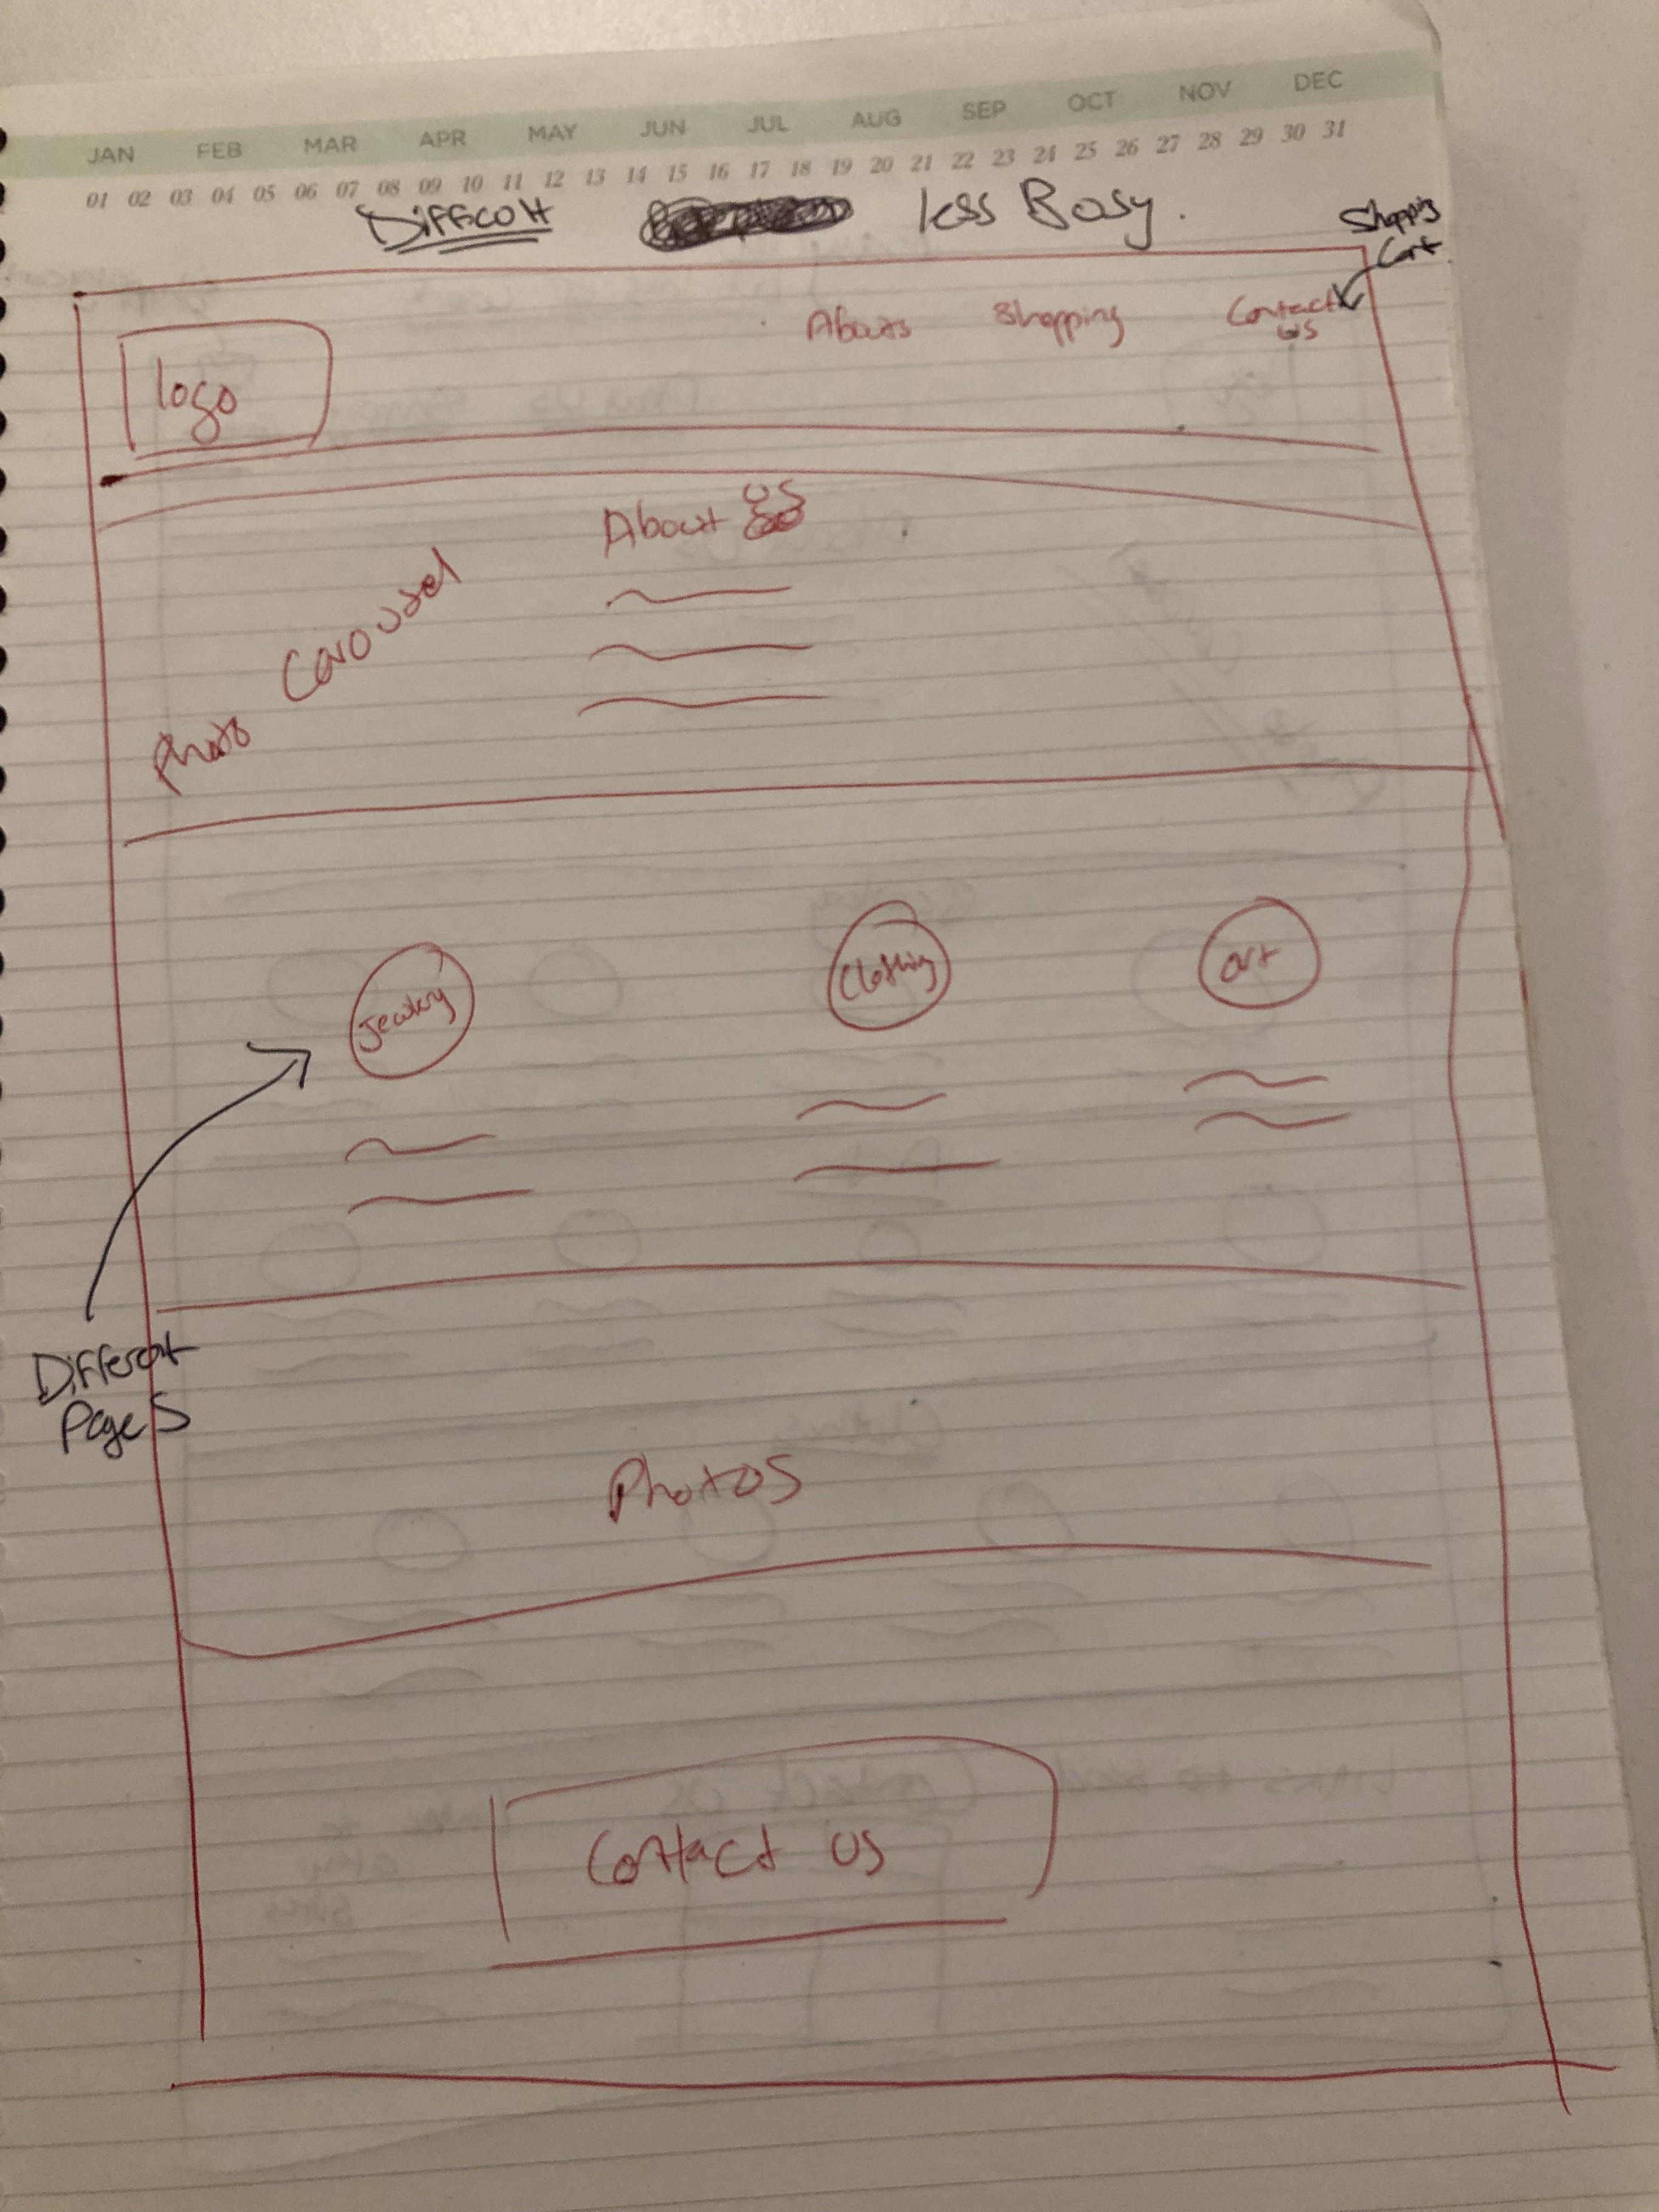 JAN FEB MAR APR MAY JUN JUL AUG SEP OCT NOV DEC
01 02 03 04 05 06 07 08 09 10 11 12 13 14 15 16 17 18 19 20 21 22 23 24 25 26 27 28 29 30 31
DiFFcolt less Busy.
Shoppig
Cart
Abouts Shopping Contact
us
logo
About US
Photo Carousel
Jewlery Clothing Art
Different
Pages
Photos
Contact us